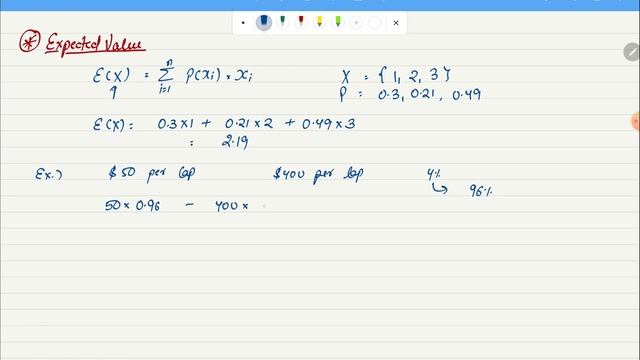 * Expected Value
E(X) = n Σ i=1 P(xi) * xi X = {1, 2, 3}
↑ P = 0.3, 0.21, 0.49
E(X) = 0.3×1 + 0.21×2 + 0.49×3
= 2.19
Ex.) $50 per lap $400 per lap 4%
↳ 96%
50 × 0.96 - 400 ×